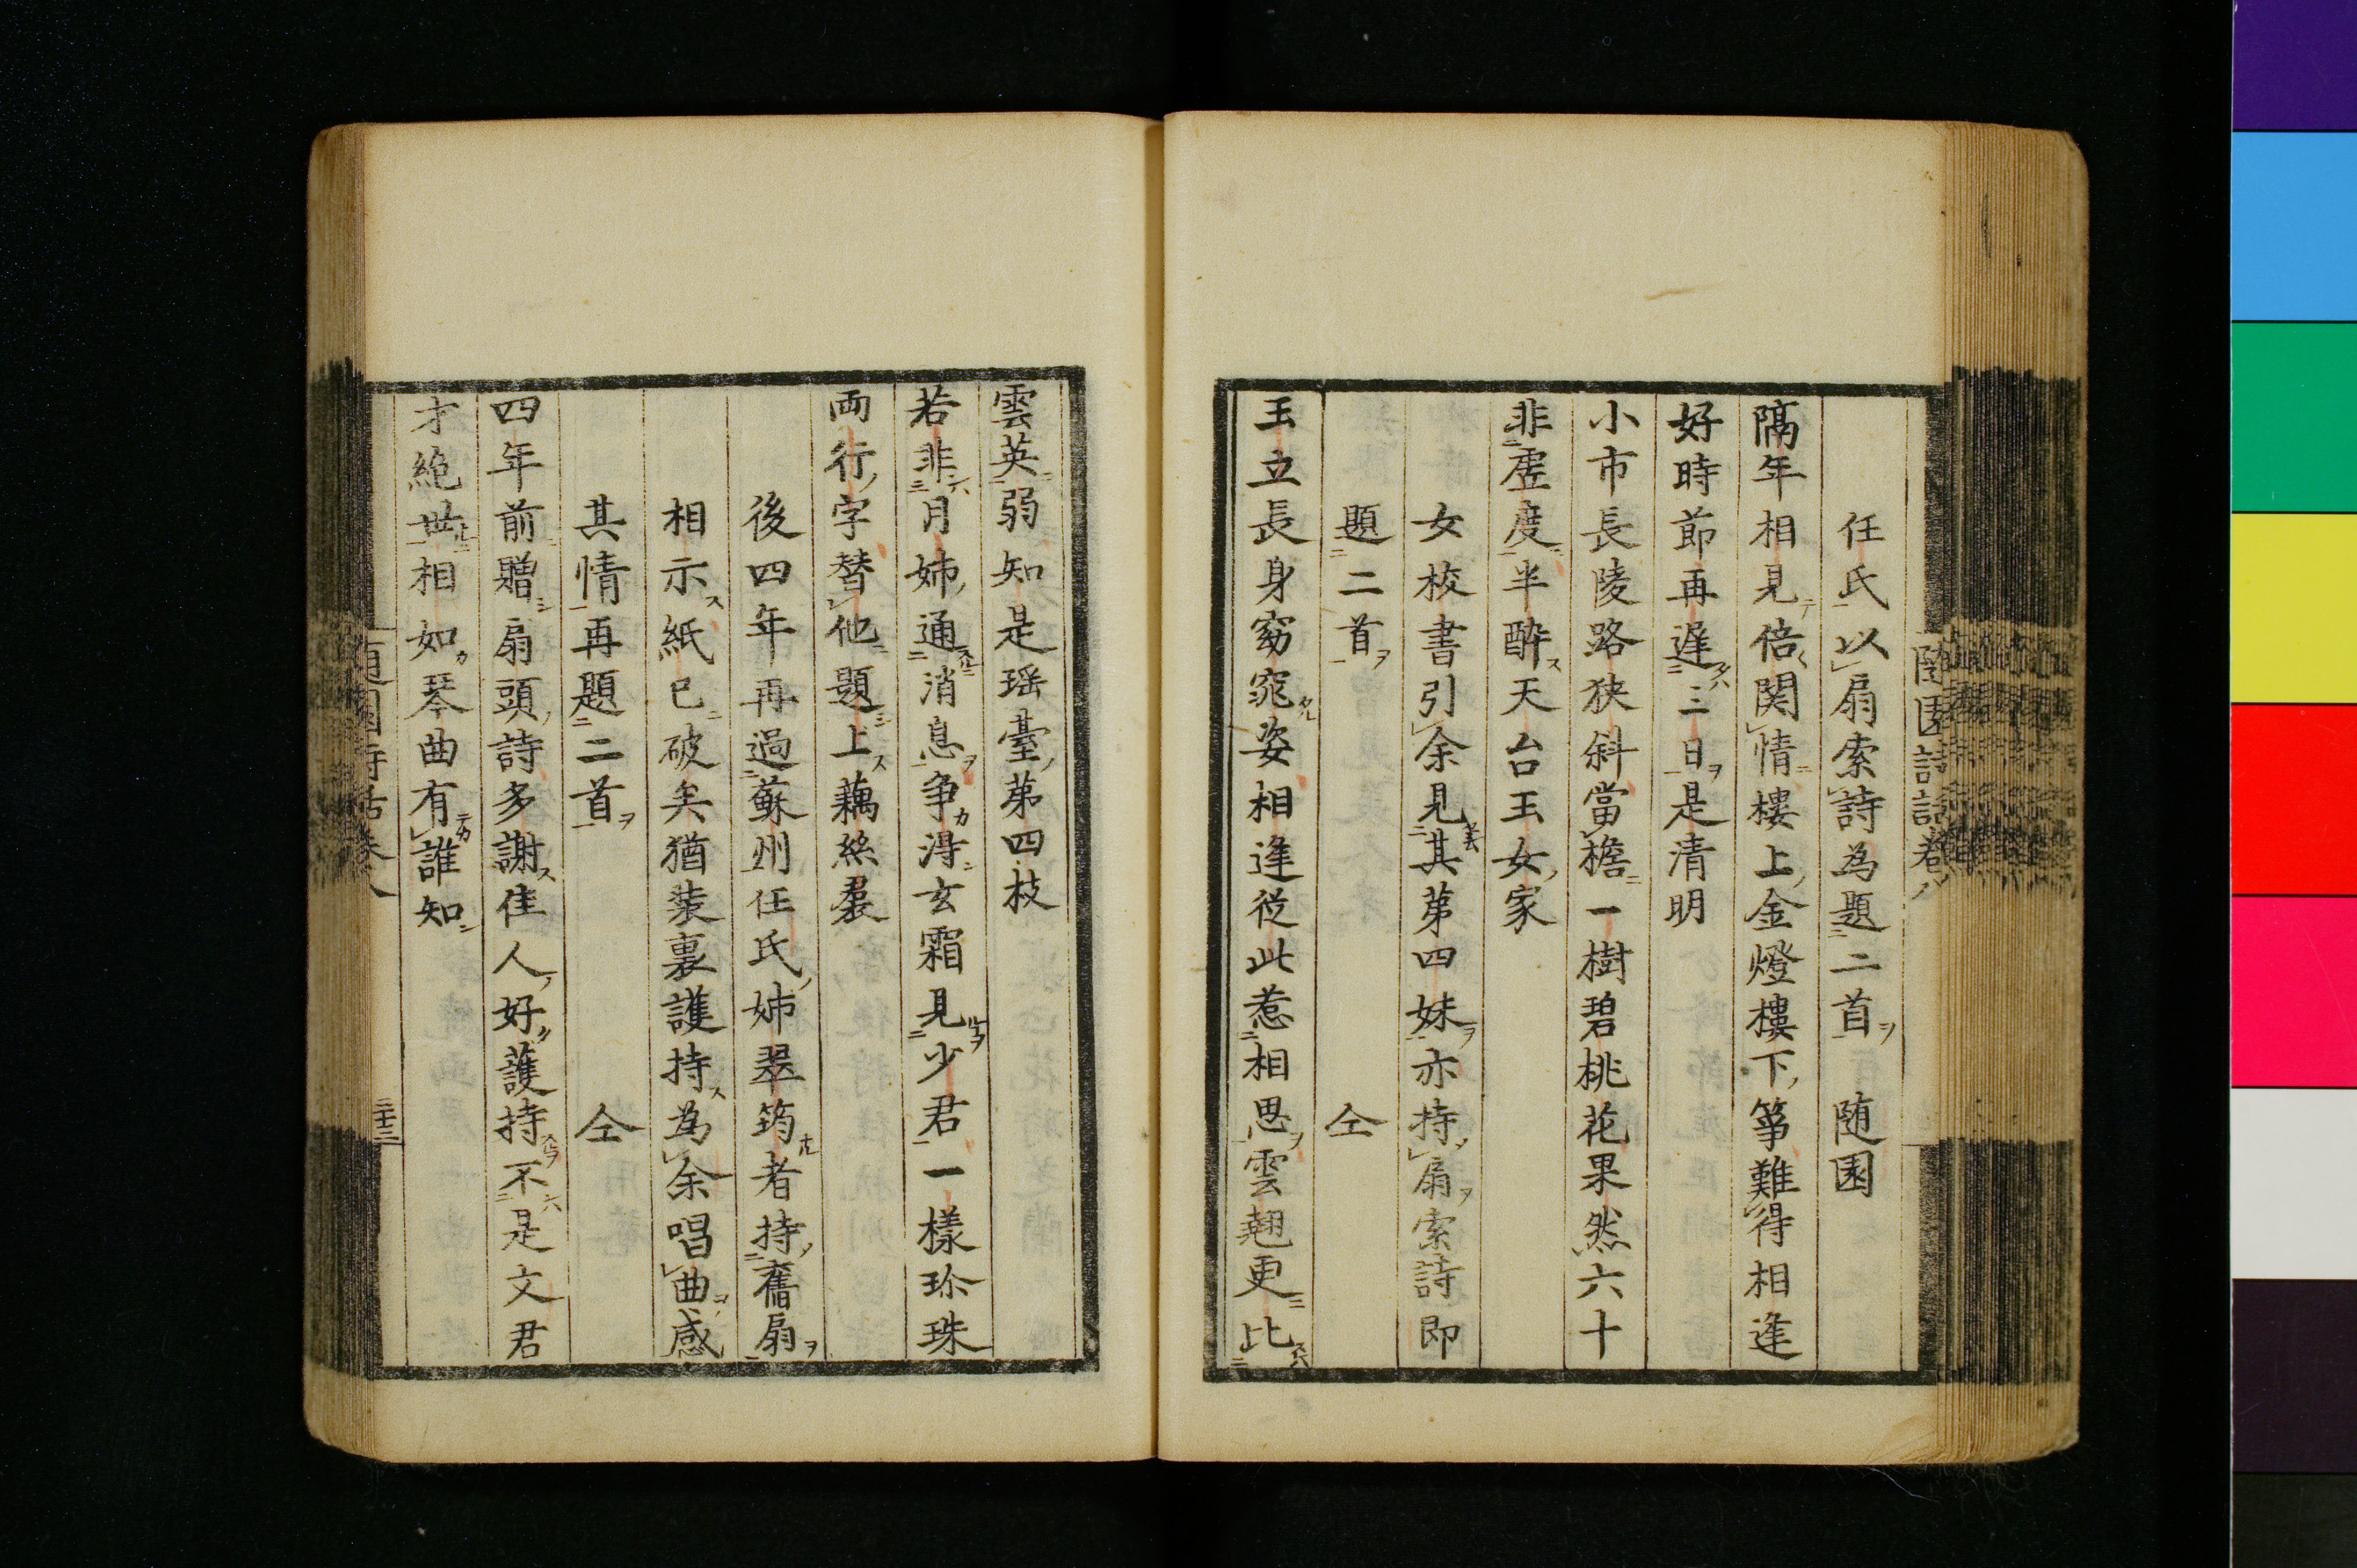 任氏以扇索詩為題二首　随園
隔年相見倍関情樓上金燈樓下箏難得相逢
好時節再遅三日是清明
小市長陵路狭斜當檐一樹碧桃花果然六十
非虚度半酔天台玉女家
女校書引余見其苐四妹亦持扇索詩即
題二首　仝
玉立長身窈窕姿相逢從此惹相思雲翹更比
雲英弱知是瑶臺苐四枝
若非月姉通消息争得玄霜見少君一樣珍珠
両行字替他題上藕絲裠
後四年再過蘇州任氏姉翠筠者持舊扇
相示紙已破矣猶装裏護持為余唱曲感
其情再題二首　仝
四年前贈扇頭詩多謝佳人好護持不是文君
才絶世相如琴曲有誰知
随園詩話巻八
二十三